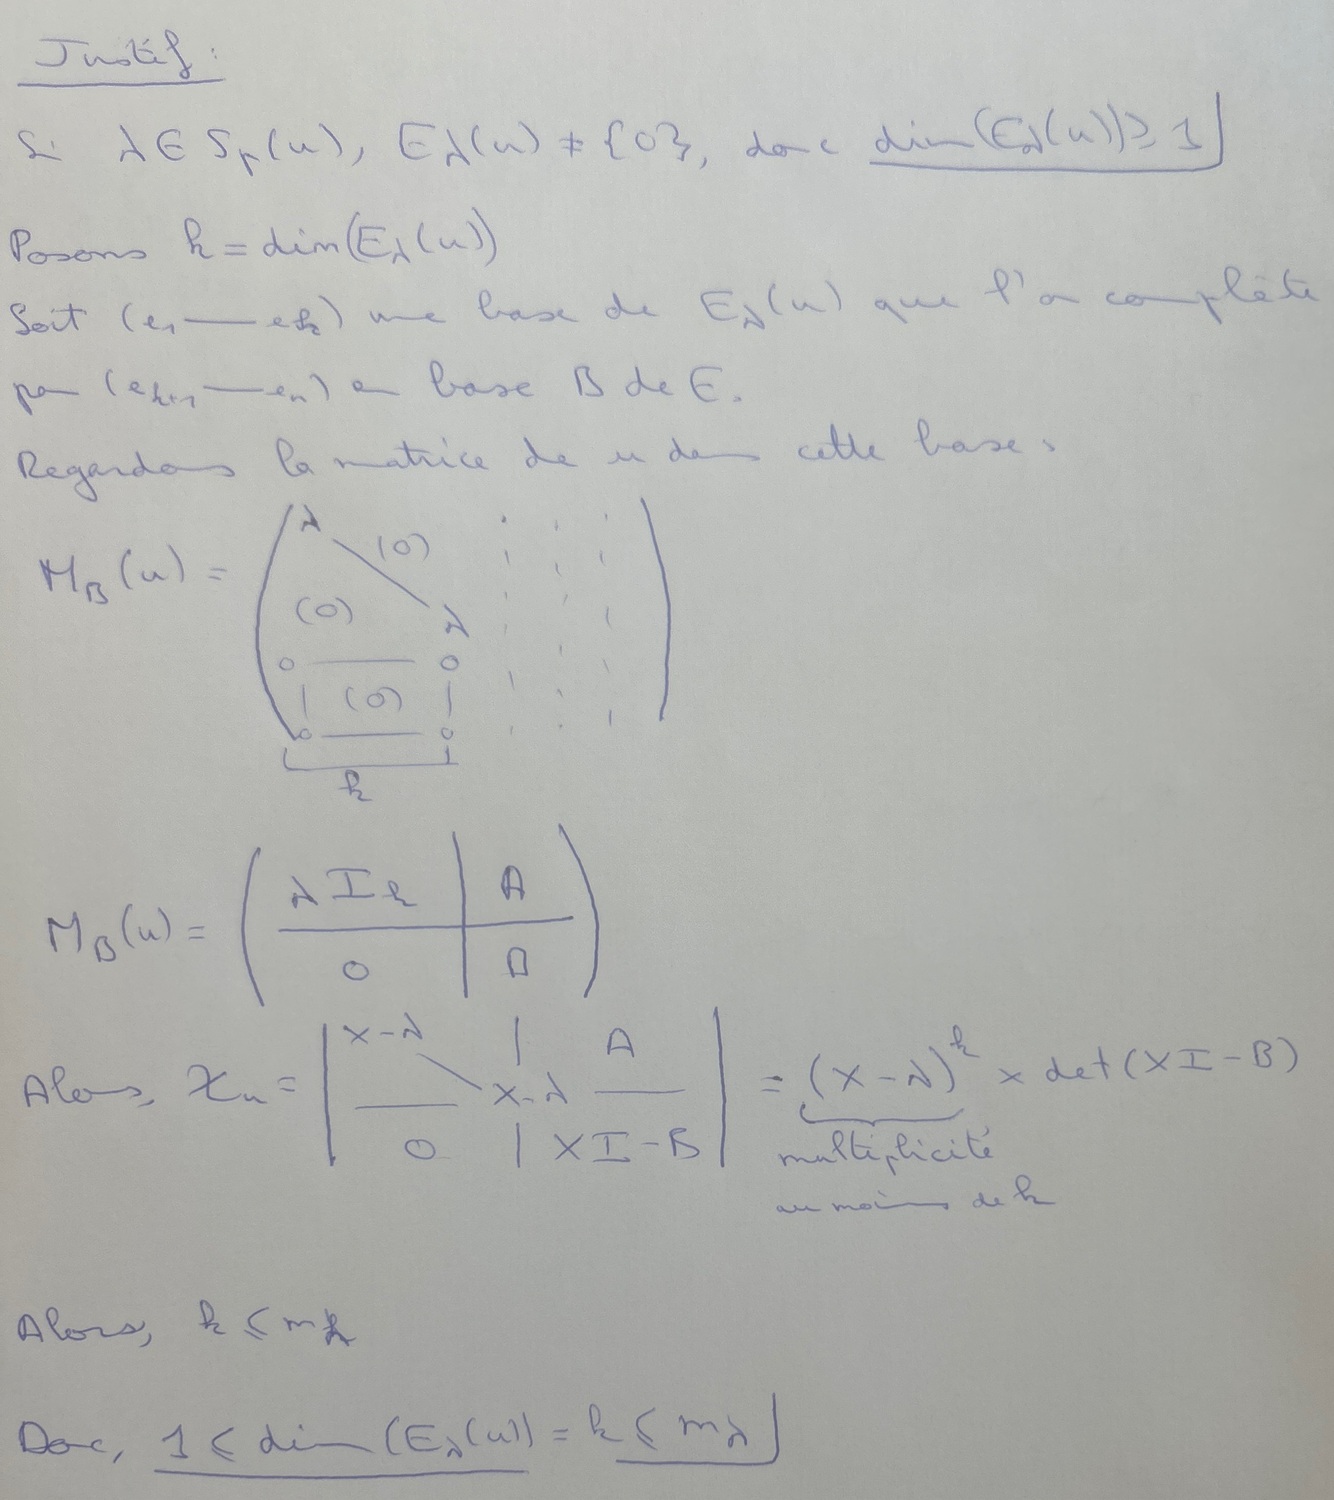 Justif :
Si λ ∈ Sp(u), Eλ(u) ≠ {0}, donc dim(Eλ(u)) ≥ 1
Posons k = dim(Eλ(u))
Soit (e₁ — ek) une base de Eλ(u) que l'on complète
par (ek+1 — en) en base B de E.
Regardons la matrice de u dans cette base :
λ
(0)
M_B(u) =
(0)
λ
0 — 0
| (0) |
0 — 0
k
M_B(u) = ( λIk | A
0 | B )
Alors, χu = | X-λ | A
X-λ
0 | XI-B | = (X-λ)^k × det(XI-B)
multiplicité
au moins de k
Alors, k ≤ mλ
Donc, 1 ≤ dim(Eλ(u)) = k ≤ mλ